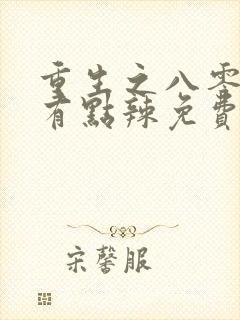 重生之八零
有點辣免費
宋馨服